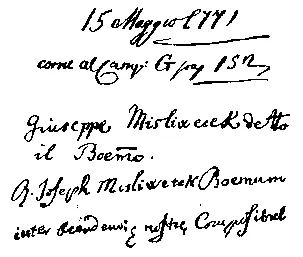 15 Maggio 1771
come al Camp: G pag 152
Giuseppe Misliwecek detto
il Boemo.
D. Joseph Misliwecek Boemum
inter Academię nostrę Compositores